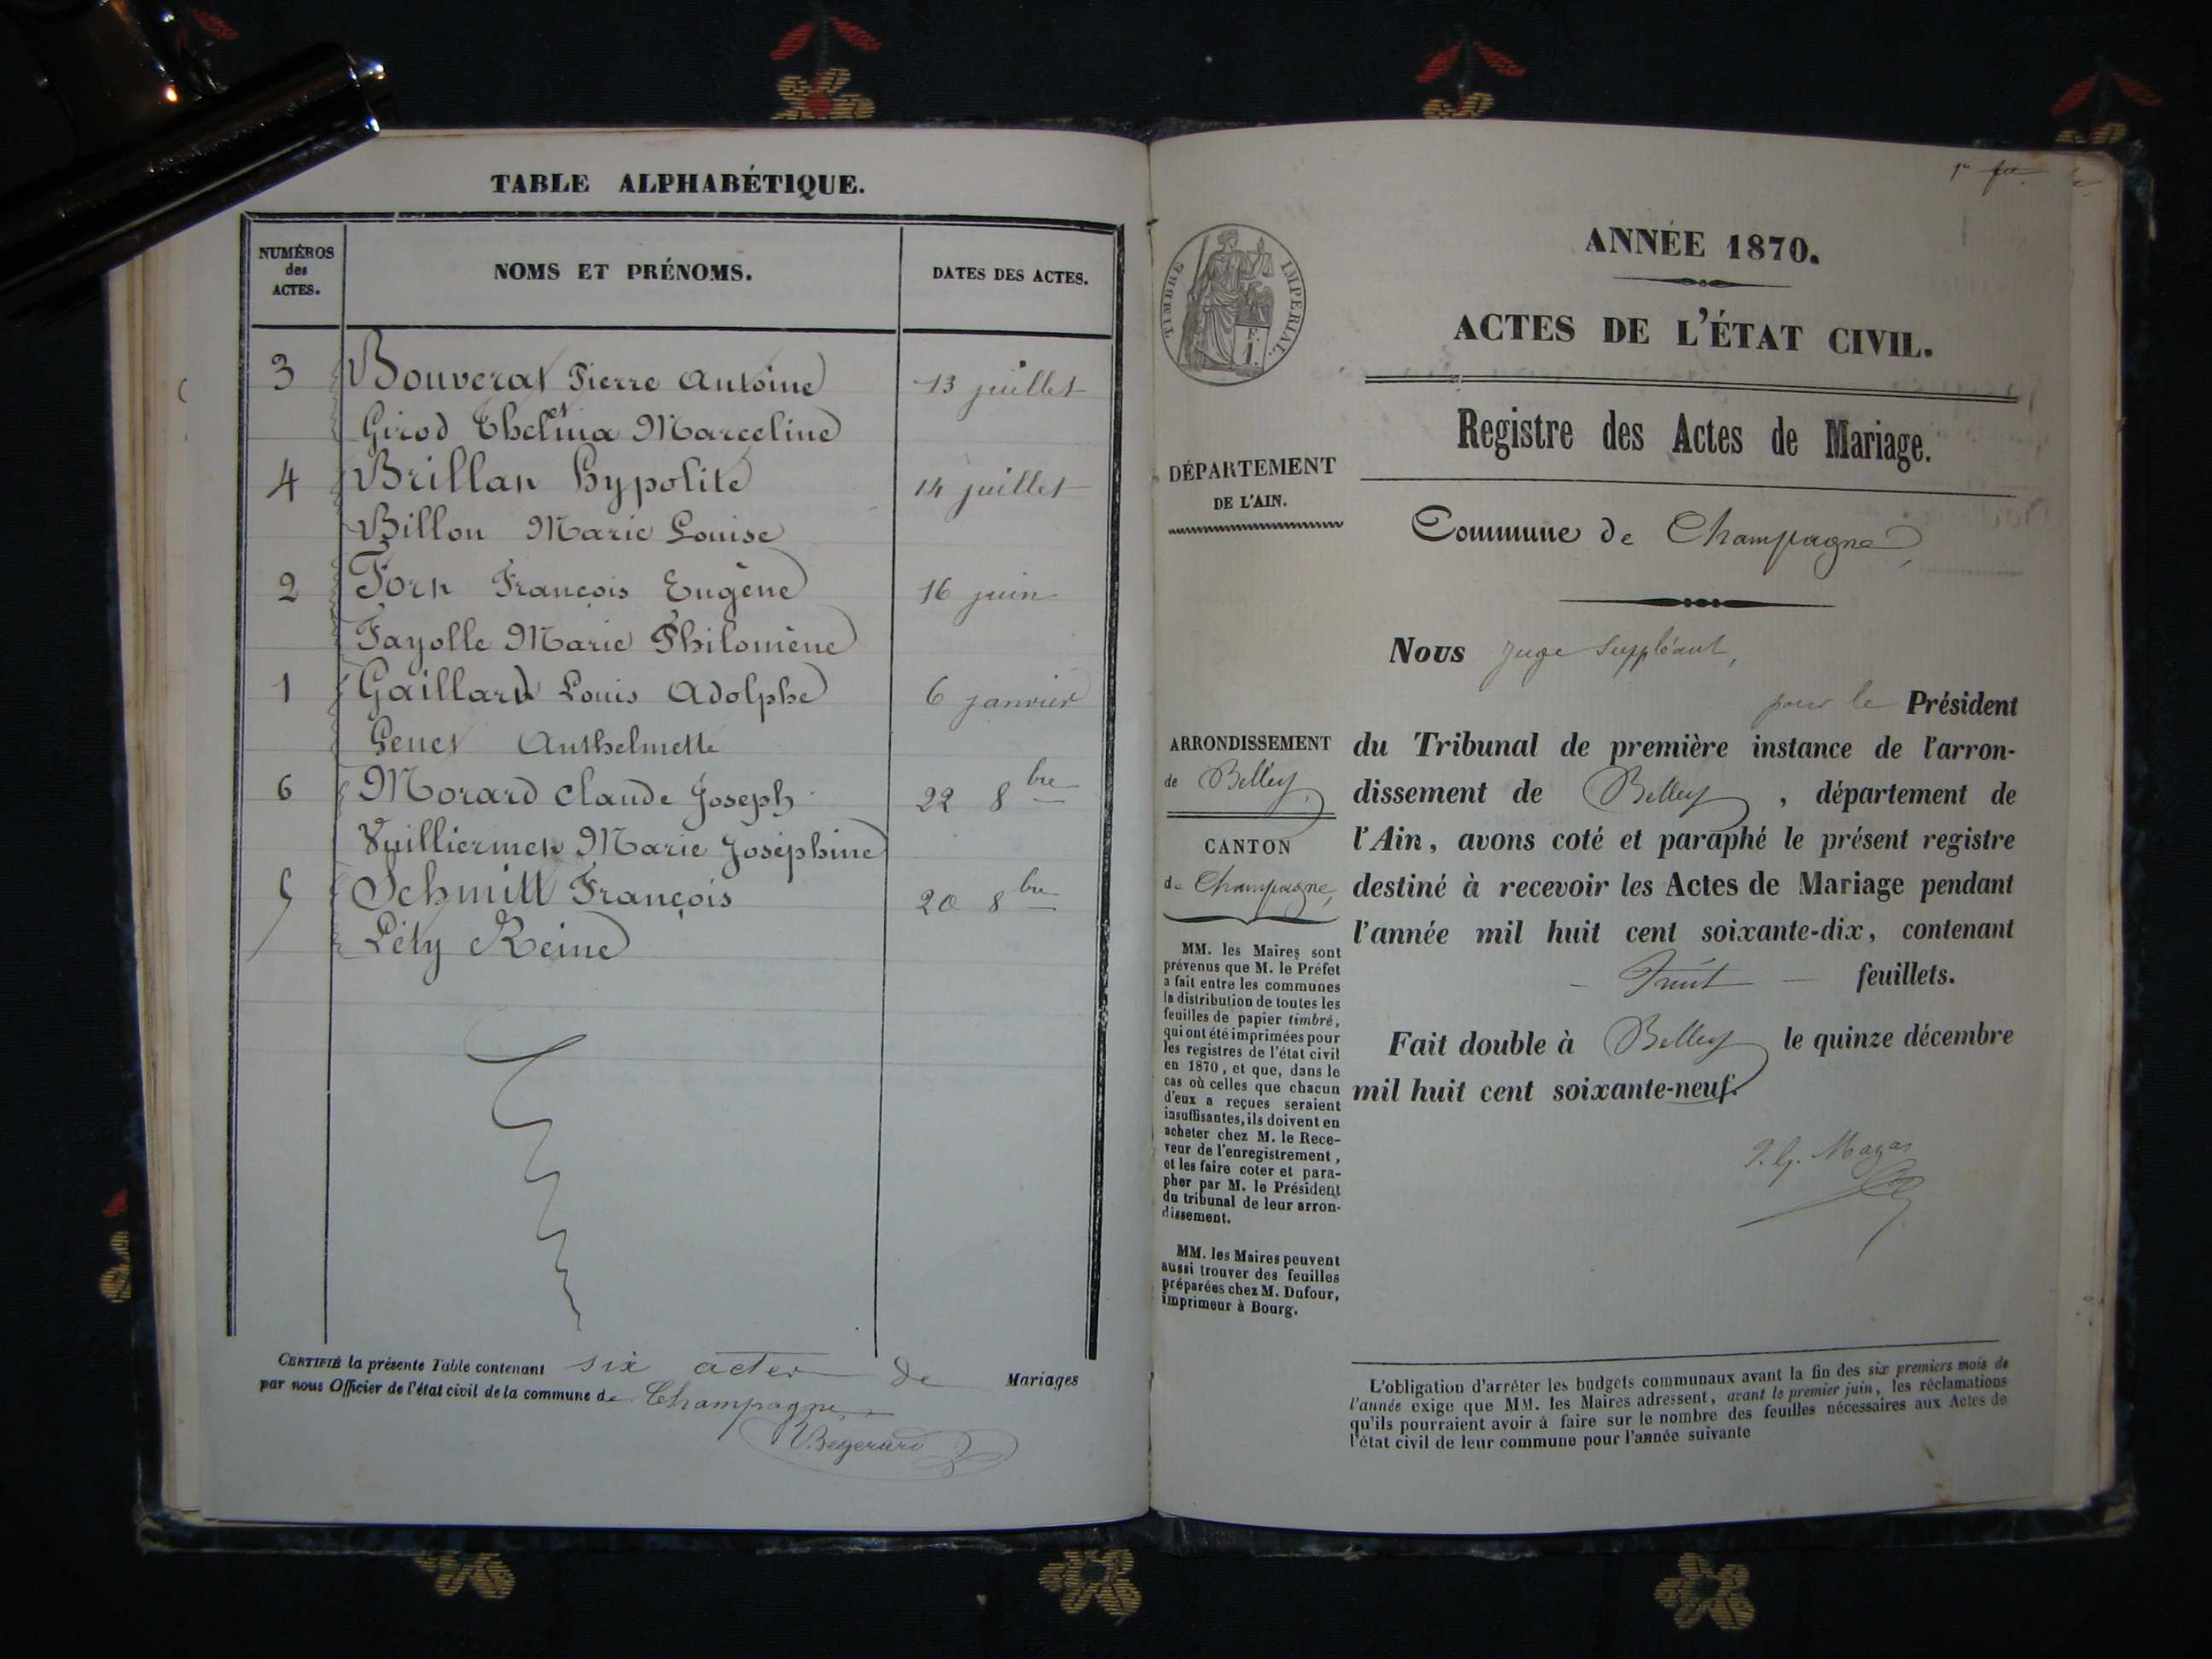 TABLE ALPHABÉTIQUE.
NUMÉROS
des
ACTES.
NOMS ET PRÉNOMS.
DATES DES ACTES.
3 Bouverat Pierre Antoine 13 juillet
Girod Thelma Marceline
4 Brillat hypolite 14 juillet
Billon Marie Louise
2 Fort François Eugène 16 juin
Fayolle Marie Philomène
1 Gaillard Louis Adolphe 6 janvier
Genet Anthelmette
6 Morard Claude Joseph 22 8bre
Vuilliermet Marie Joséphine
5 Schmitt François 20 8bre
Léty Reine
CERTIFIÉ la présente Table contenant six actes de Mariages
par nous Officier de l'état civil de la commune de Champagne
TIMBRE IMPERIAL.
ANNÉE 1870.
ACTES DE L'ÉTAT CIVIL.
Registre des Actes de Mariage.
DÉPARTEMENT
DE L'AIN.
Commune de Champagne,
Nous Juge Suppléant,
pour le Président
du Tribunal de première instance de l'arron-
dissement de Belley, département de
l'Ain, avons coté et paraphé le présent registre
destiné à recevoir les Actes de Mariage pendant
l'année mil huit cent soixante-dix, contenant
feuillets.
Fait double à Belley le quinze décembre
mil huit cent soixante-neuf.
ARRONDISSEMENT
de Belley,
CANTON
de Champagne,
MM. les Maires sont
prévenus que M. le Préfet
a fait entre les communes
la distribution de toutes les
feuilles de papier timbré,
qui ont été imprimées pour
les registres de l'état civil
en 1870, et que, dans le
cas où celles que chacun
d'eux a reçues seraient
insuffisantes, ils doivent en
acheter chez M. le Rece-
veur de l'enregistrement,
et les faire coter et para-
pher par M. le Président
du tribunal de leur arron-
dissement.
MM. les Maires peuvent
aussi trouver des feuilles
préparées chez M. Dufour,
imprimeur à Bourg.
L'obligation d'arrêter les budgets communaux avant la fin des six premiers mois de
l'année exige que MM. les Maires adressent, avant le premier juin, les réclamations
qu'ils pourraient avoir à faire sur le nombre des feuilles nécessaires aux Actes de
l'état civil de leur commune pour l'année suivante